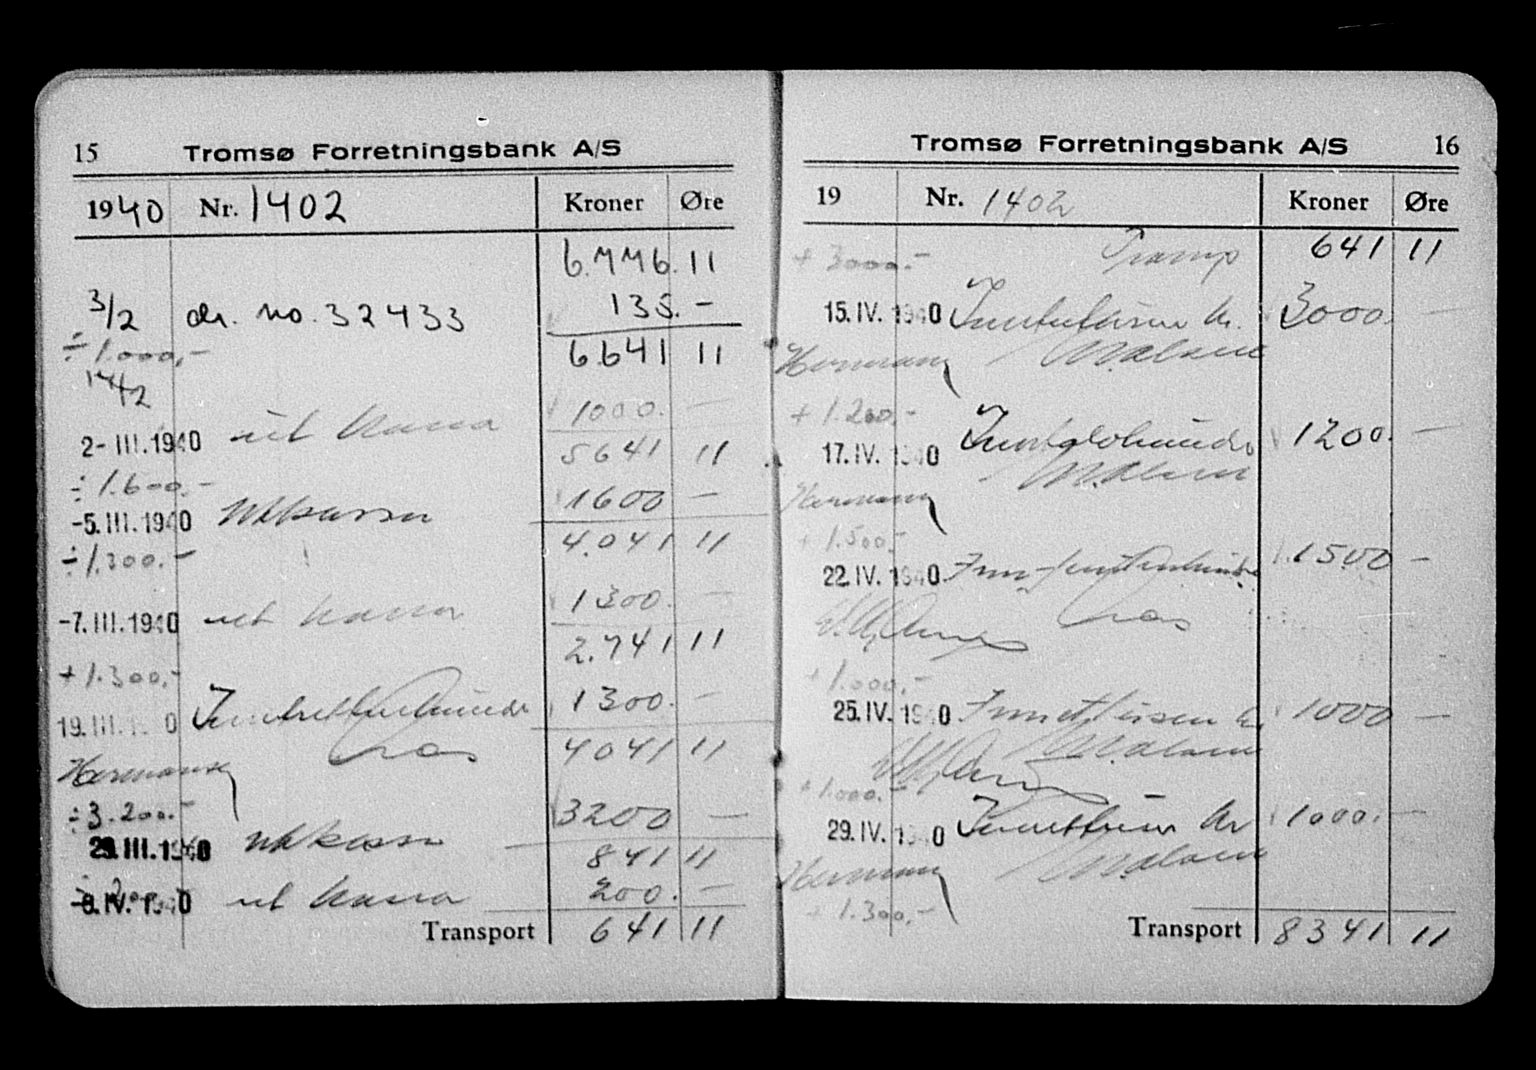 15 Tromsø Forretningsbank A/S
1940 Nr. 1402 Kroner Øre
6.776. 11
3/2 dr. no. 32433 135. –
÷ 1.000,– 6.641 11
14/2
1000. –
2-III.1940 ut kassa
5641 11
÷ 1.600.–
1600 –
-5.III.1940 ut kassa
4.041 11
÷ 1.300.–
1300. –
-7.III.1940 ut kassa
2.741 11
+ 1.300,–
1300. –
19.III.1940
4041 11
Hermansen
÷ 3.200.– 3200 –
29.III.1940 ut kassa
841 11
-8.IV.1940 ut kassa 200. –
Transport 641 11
Tromsø Forretningsbank A/S 16
19 Nr. 1402 Kroner Øre
+ 3000.– Transp 641 11
15.IV.1940 kr. 3000. –
Hermans
+ 1.200.–
17.IV.1940 1200. –
Hermans
+ 1.500.–
22.IV.1940 1500 –
+ 1.000,–
25.IV.1940 1000 –
+ 1.000.–
29.IV.1940 kr 1000. –
Hermans
+ 1.300,–
Transport 8341 11